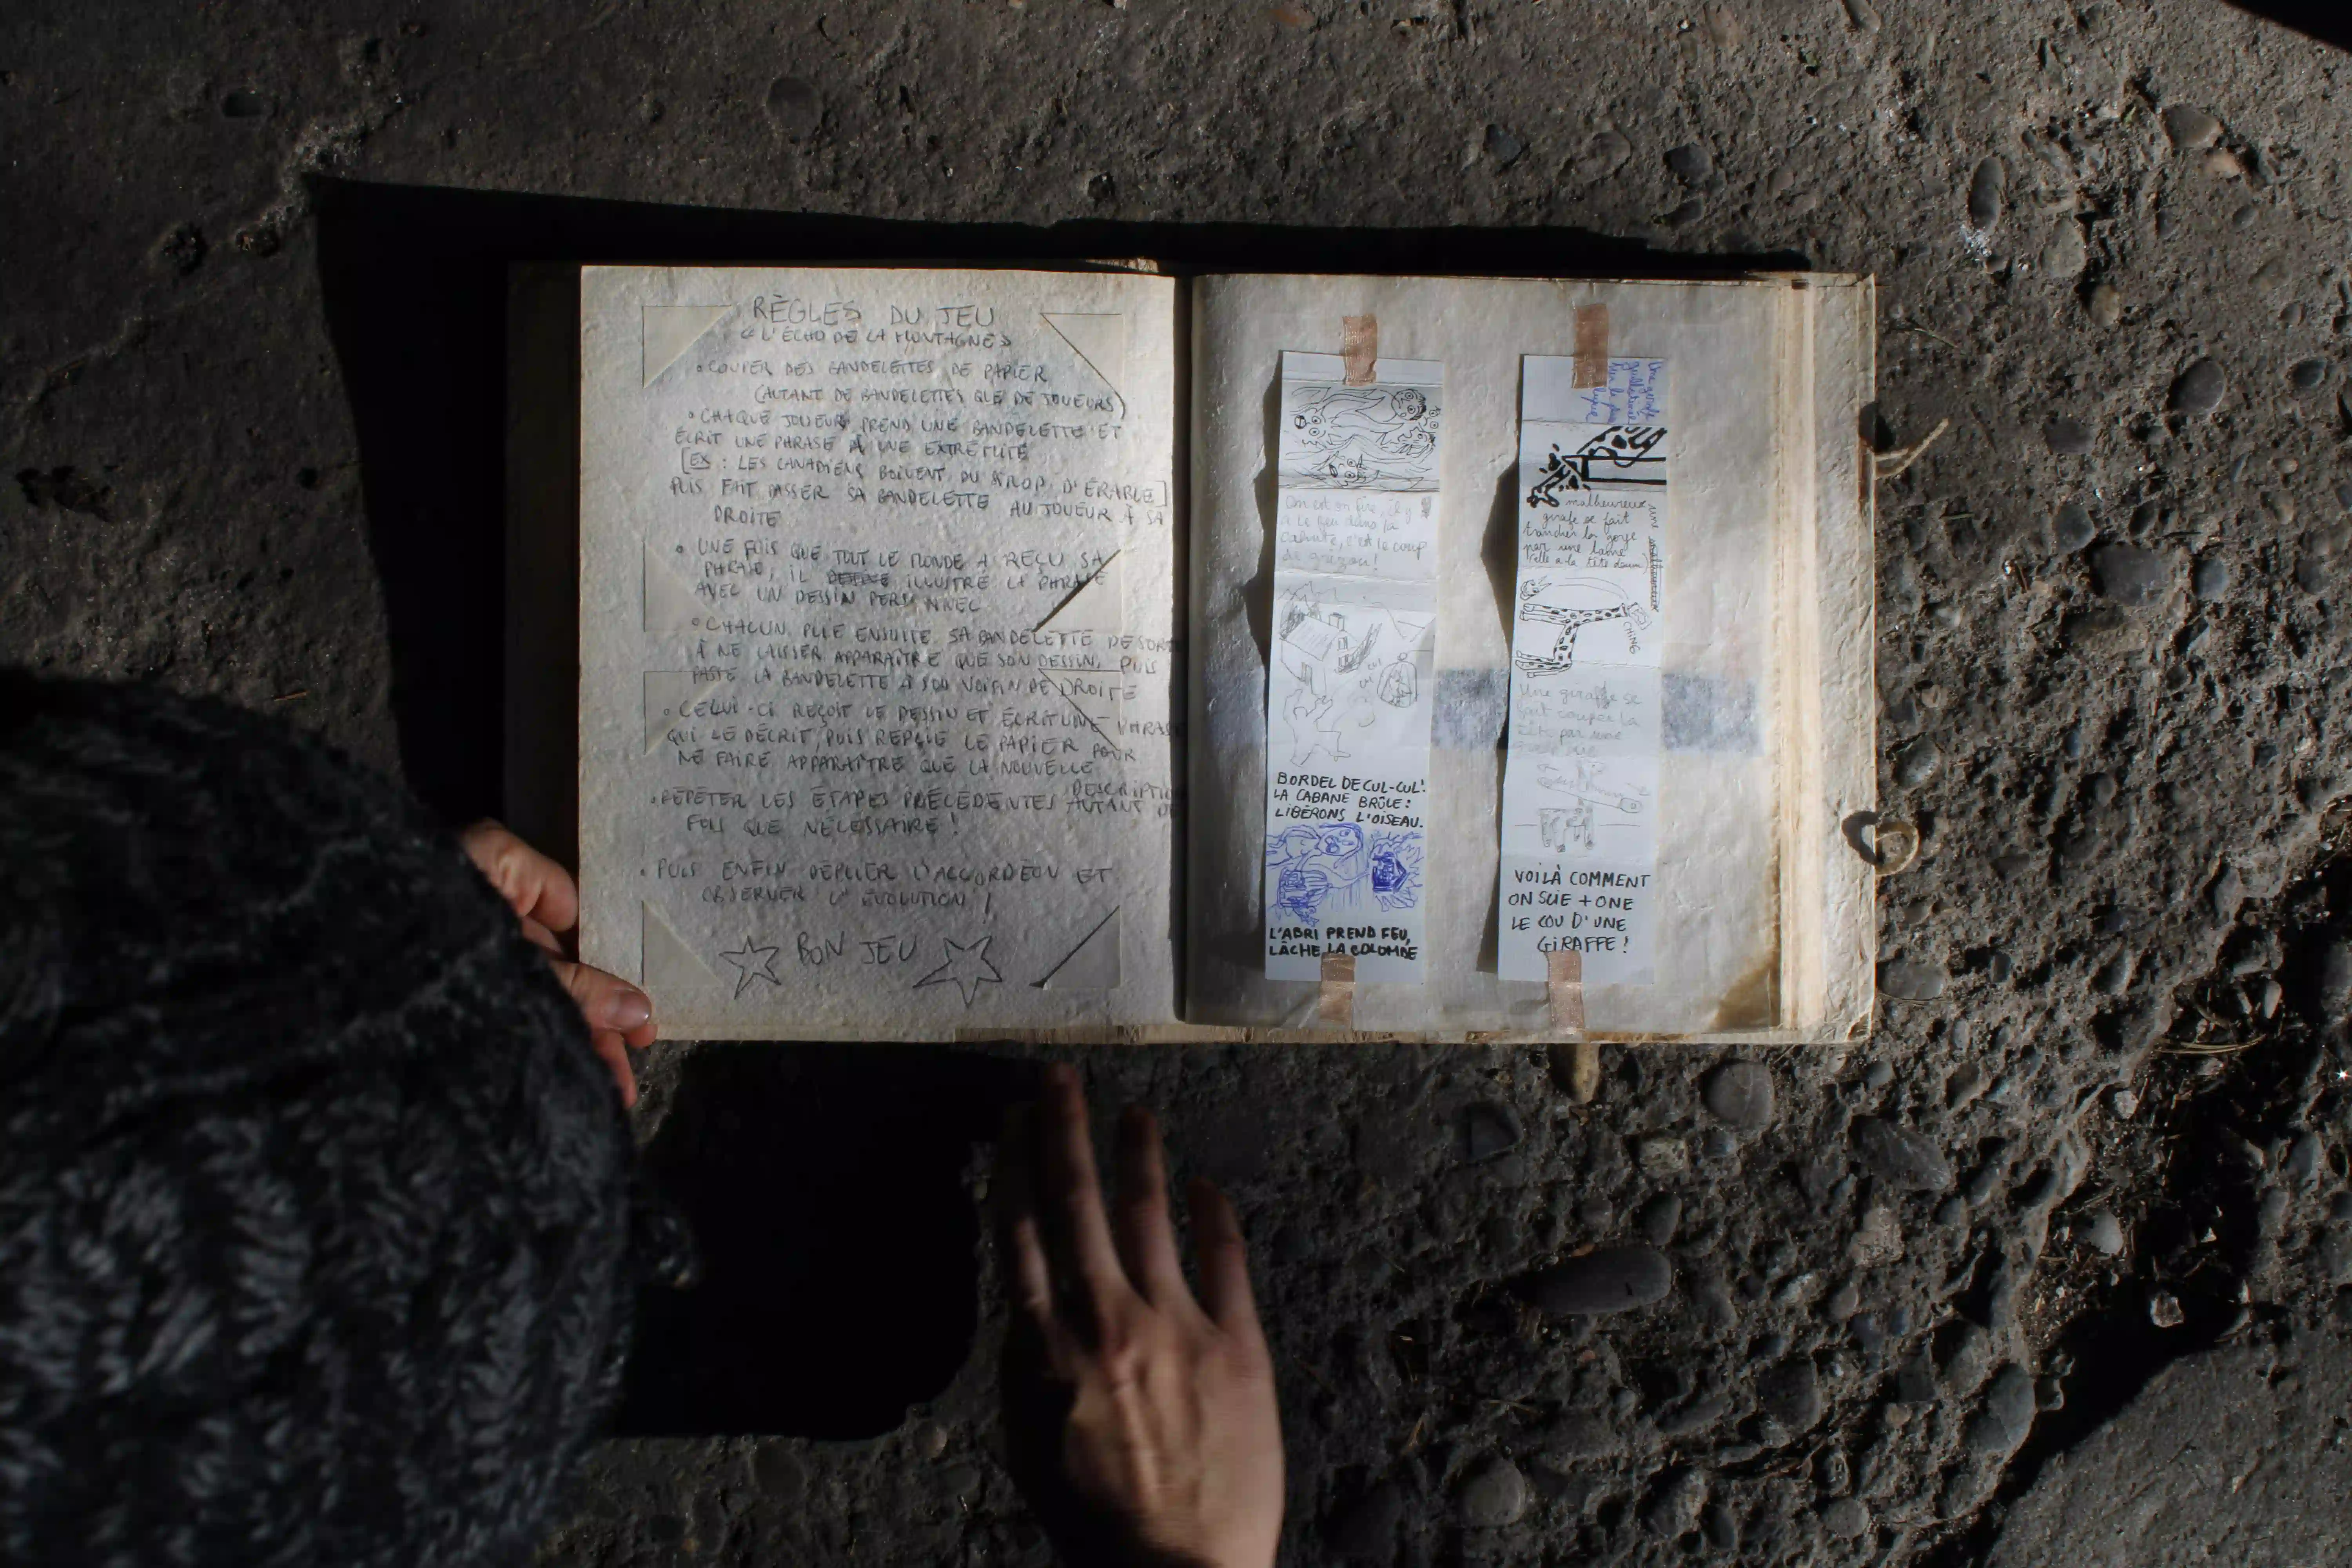 RÈGLES DU JEU
« L'ÉCHO DE LA MONTAGNE »
• COUPER DES BANDELETTES DE PAPIER
(AUTANT DE BANDELETTES QUE DE JOUEURS)
• CHAQUE JOUEUR PREND UNE BANDELETTE ET
ÉCRIT UNE PHRASE À UNE EXTRÉMITÉ
[EX : LES CANADIENS BOIVENT DU SIROP D'ÉRABLE]
PUIS FAIT PASSER SA BANDELETTE AU JOUEUR À SA
DROITE
• UNE FOIS QUE TOUT LE MONDE A REÇU SA
PHRASE, IL ILLUSTRE LA PHRASE
AVEC UN DESSIN PERSONNEL
• CHACUN PLIE ENSUITE SA BANDELETTE DE SORTE
À NE LAISSER APPARAÎTRE QUE SON DESSIN, PUIS
PASSE LA BANDELETTE À SON VOISIN DE DROITE
• CELUI-CI REÇOIT LE DESSIN ET ÉCRIT UNE PHRASE
QUI LE DÉCRIT, PUIS REPLIE LE PAPIER POUR
NE FAIRE APPARAÎTRE QUE LA NOUVELLE
DESCRIPTION
• RÉPÉTER LES ÉTAPES PRÉCÉDENTES AUTANT DE
FOIS QUE NÉCESSAIRE !
• PUIS ENFIN DÉPLIER L'ACCORDÉON ET
OBSERVER L'ÉVOLUTION !
BON JEU
On est en feu, il y
a le feu dans la
cahute, c'est le coup
de grizou !
cui
cui
BORDEL DE CUL-CUL !
LA CABANE BRÛLE :
LIBÉRONS L'OISEAU.
L'ABRI PREND FEU,
LÂCHE LA COLOMBE
Une girafe
guillotinée
malheureux
girafe se fait
trancher la gorge
par une lame
CHING
Une giraffe se
fait couper la
tête par une
VOILÀ COMMENT
ON SCIE + ONE
LE COU D'UNE
GIRAFFE !